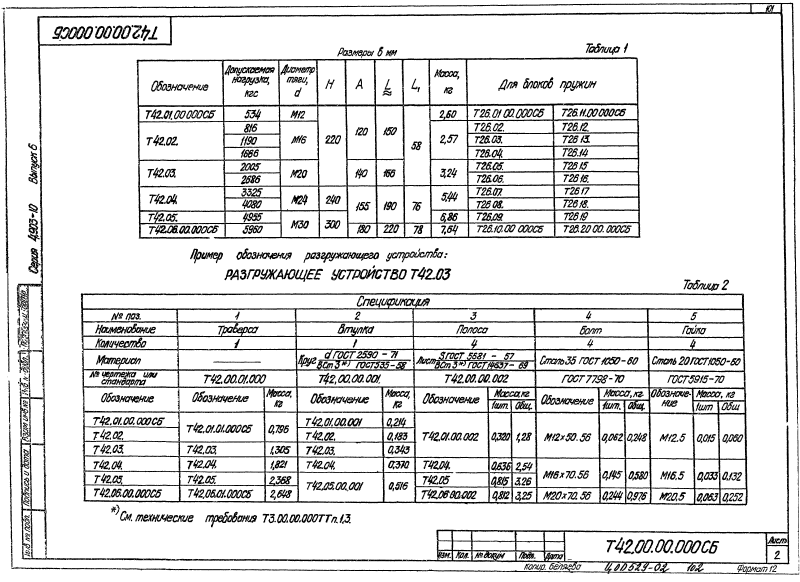 101
Т42.00.00.000СБ
Серия 4.903-10 Выпуск 6
Размеры в мм Таблица 1
Обозначение Допускаемая нагрузка, кгс Диаметр тяги, d H A L≈ L₁ Масса, кг Для блоков пружин
Т42.01.00.000СБ 534 М12 220 120 150 58 2,60 Т26.01.00.000СБ Т26.11.00.000СБ
Т42.02. 816 М16 2,57 Т26.02. Т26.12.
1190 Т26.03. Т26.13.
1666 Т26.04. Т26.14
Т42.03. 2005 М20 140 166 3,24 Т26.05. Т26.15
2686 Т26.06. Т26.16.
Т42.04. 3325 М24 240 155 190 76 5,44 Т26.07. Т26.17
4080 Т26.08. Т26.18.
Т42.05. 4955 М30 300 6,86 Т26.09. Т26.19
Т42.06.00.000СБ 5960 180 220 78 7,64 Т26.10.00.000СБ Т26.20.00.000СБ
Пример обозначения разгружающего устройства:
РАЗГРУЖАЮЩЕЕ УСТРОЙСТВО Т42.03
Таблица 2
Спецификация
№ поз. 1 2 3 4 5
Наименование Траверса Втулка Полоса Болт Гайка
Количество 1 1 4 4 4
Материал —— Круг d ГОСТ 2590-71 / ВСт3*) ГОСТ535-58 Лист 5 ГОСТ 5681-57 / ВСт3*) ГОСТ14637-69 Сталь 35 ГОСТ 1050-60 Сталь 20 ГОСТ1050-60
№ чертежа или стандарта Т42.00.01.000 Т42.00.00.001. Т42.00.00.002 ГОСТ 7798-70 ГОСТ5915-70
Обозначение Обозначение Масса, кг Обозначение Масса, кг Обозначение Масса, кг 1шт. Общ. Обозначение Масса, кг 1шт. Общ. Обозначение Масса, кг 1шт Общ
Т42.01.00.000СБ Т42.01.01.000СБ 0,796 Т42.01.00.001 0,214 Т42.01.00.002 0,320 1,28 М12×50.56 0,062 0,248 М12.5 0,015 0,060
Т42.02. Т42.02. 0,183
Т42.03. Т42.03. 1,305 Т42.03. 0,343
Т42.04. Т42.04. 1,821 Т42.04. 0,370 Т42.04. 0,636 2,54 М16×70.56 0,145 0,580 М16.5 0,033 0,132
Т42.05. Т42.05. 2,368 Т42.05.00.001 0,516 Т42.05 0,815 3,26
Т42.06.00.000СБ Т42.06.01.000СБ 2,648 Т42.06.00.002 0,812 3,25 М20×70.56 0,244 0,976 М20.5 0,063 0,252
*) См. технические требования Т3.00.00.000ТТ п.1,3.
Изм. Кол. № докум Подп. Дата
Т42.00.00.000СБ
Лист
2
Копир. Беляева Ц00529-02 102 Формат 12